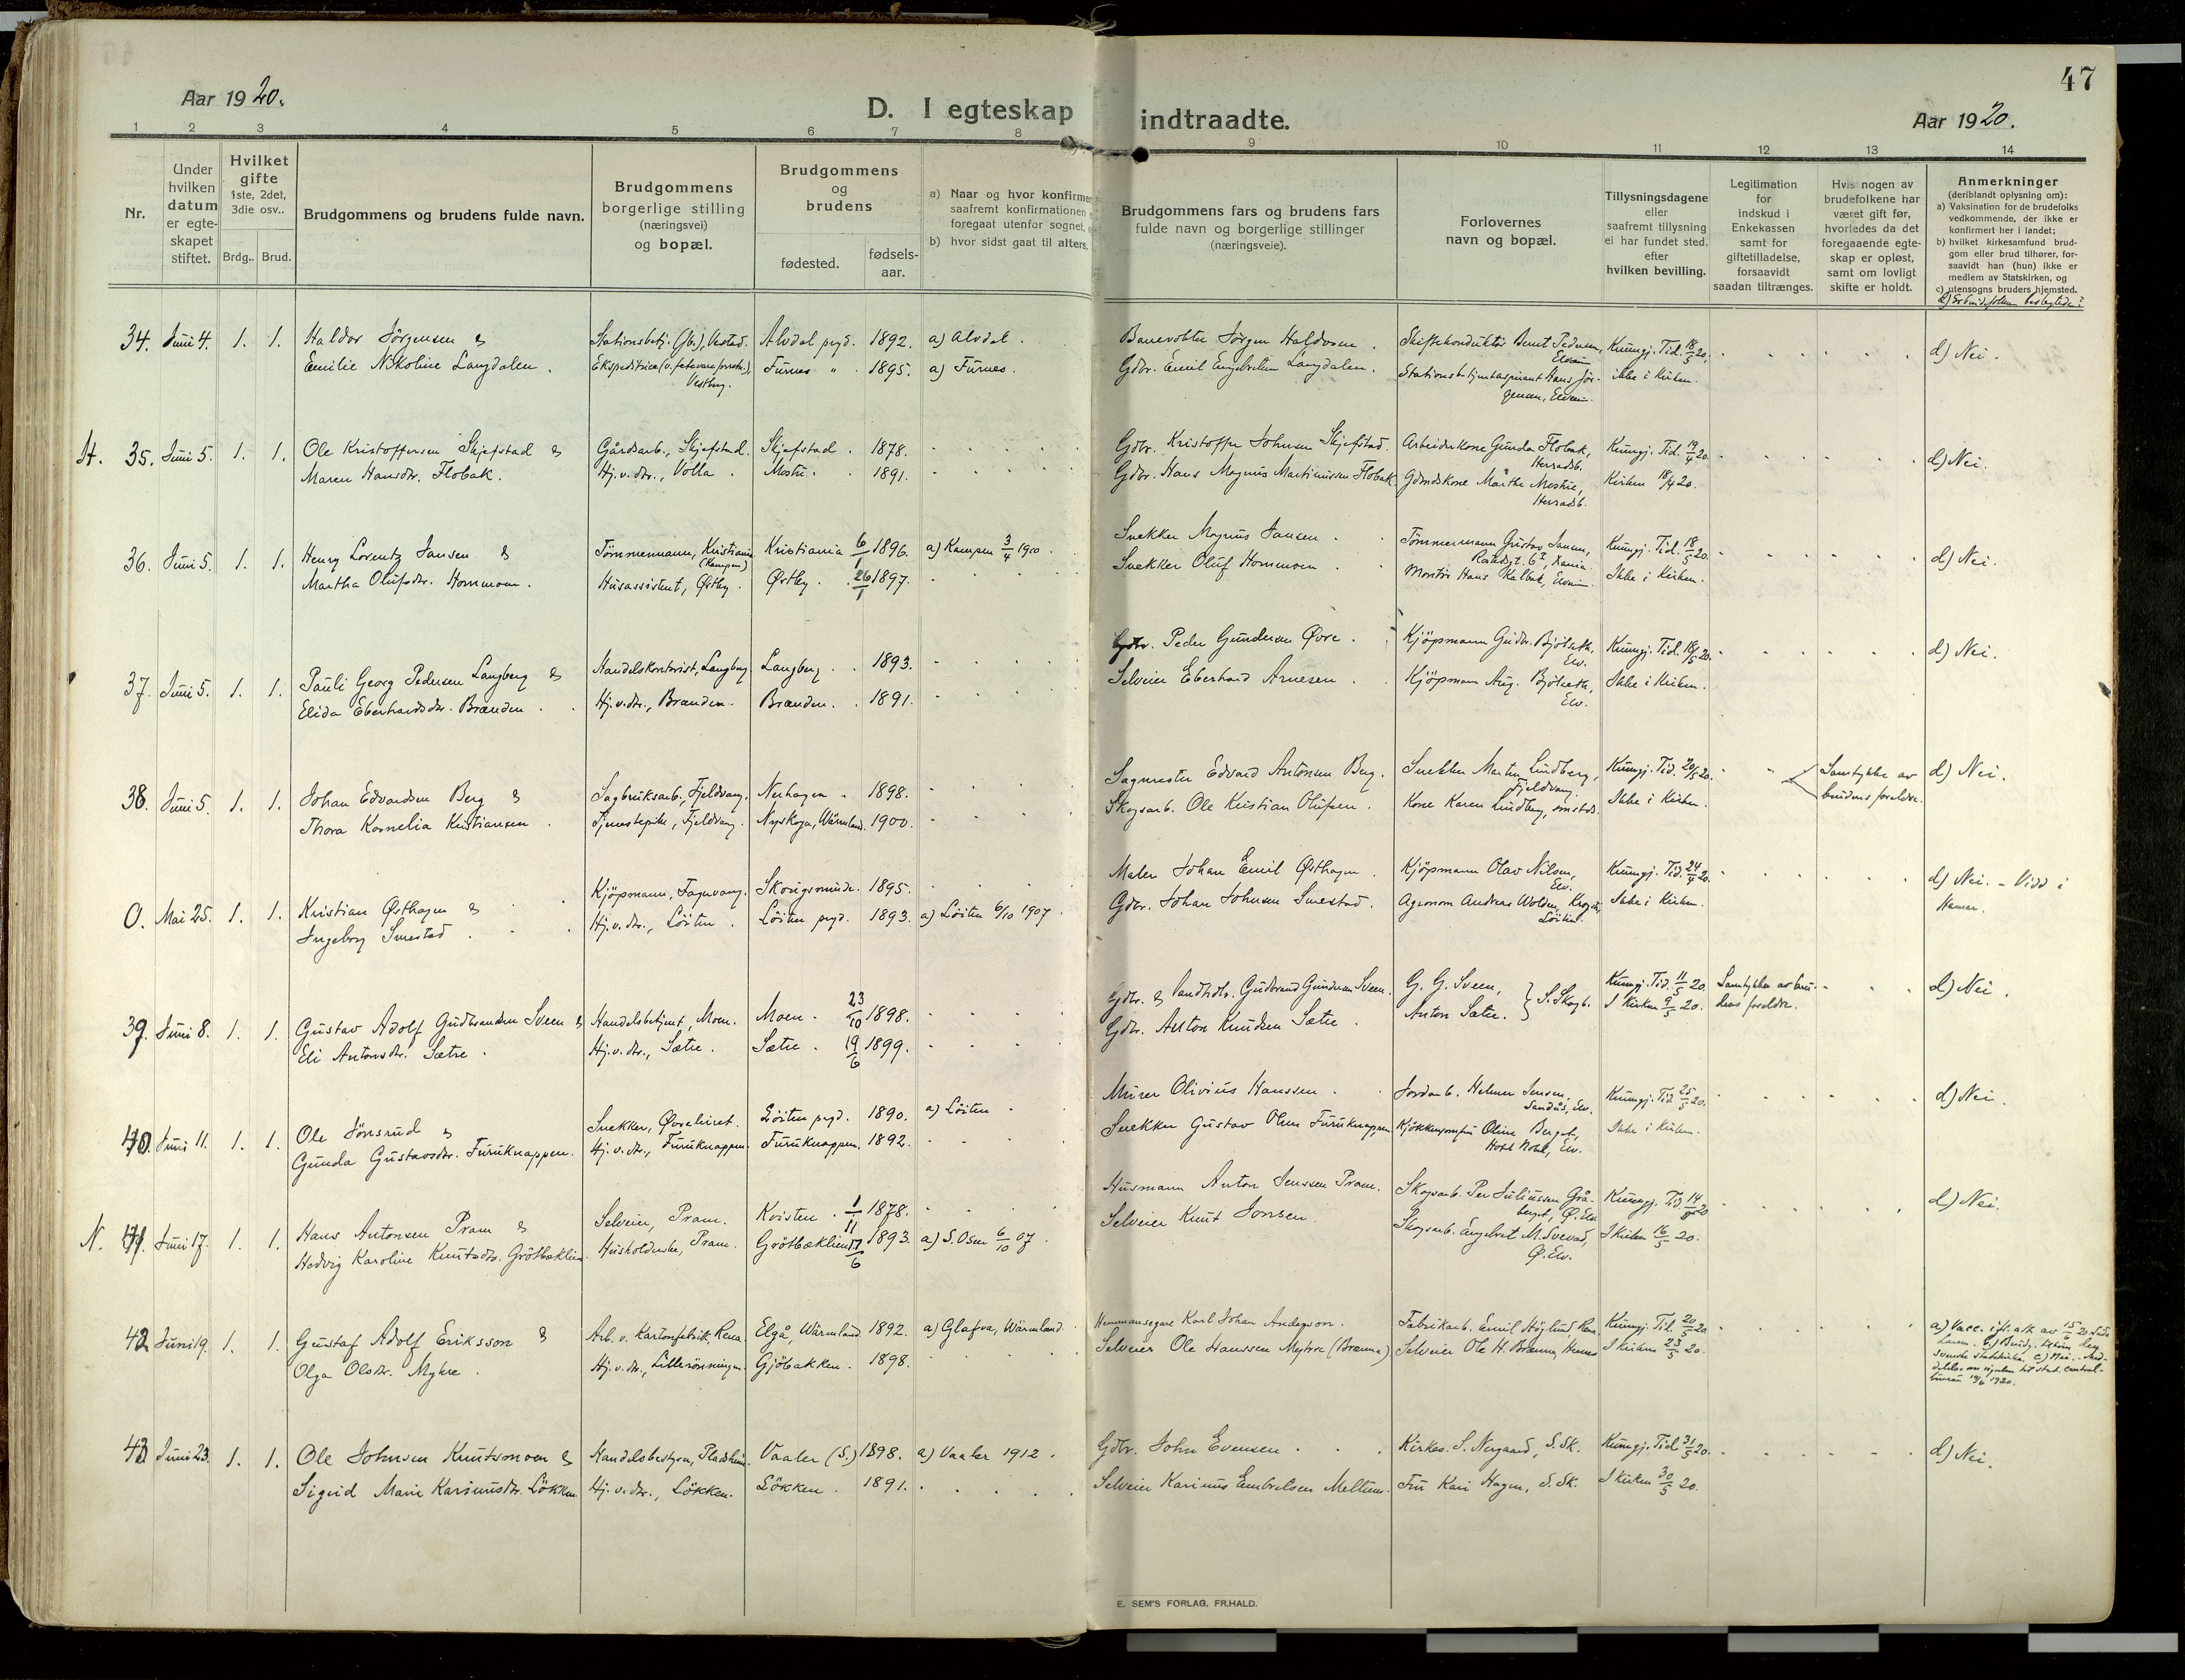 47
Aar 1920.
D. I egteskap indtraadte.
Aar 1920.
1 2 3 4 5 6 7 8 9 10 11 12 13 14
Nr.
Under hvilken datum er egte-skapet stiftet.
Hvilket gifte 1ste, 2det, 3die osv..
Brdg.. Brud.
Brudgommens og brudens fulde navn.
Brudgommens borgerlige stilling (næringsvei) og bopæl.
Brudgommens og brudens
fødested. fødsels-aar.
a) Naar og hvor konfirme
saafremt konfirmationen
foregaat utenfor sognet,
b) hvor sidst gaat til alters.
Brudgommens fars og brudens fars
fulde navn og borgerlige stillinger
(næringsveie).
Forlovernes
navn og bopæl.
Tillysningsdagene
eller
saafremt tillysning
ei har fundet sted,
efter
hvilken bevilling.
Legitimation
for
indskud i
Enkekassen
samt for
giftetilladelse,
forsaavidt
saadan tiltrænges.
Hvis nogen av
brudefolkene har
været gift før,
hvorledes da det
foregaaende egte-
skap er opløst,
samt om lovligt
skifte er holdt.
Anmerkninger
(deriblandt oplysning om):
a) Vaksination for de brudefolks
vedkommende, der ikke er
konfirmert her i landet;
b) hvilket kirkesamfund brud-
gom eller brud tilhører, for-
saavidt han (hun) ikke er
medlem av Statskirken, og
c) utensogns bruders hjemsted.
d) Er brudefolkene beslegtede?
34. Juni 4. 1. 1. Haldor Jörgensen & Stationsbetj. (jb.), Vestad. Alvdal prgd. 1892. a) Alvdal. Banevokter Jörgen Haldorsen. Skiftekonduktör Bernt Pedersen, Elverum Kungj. Tid. 18/5 20. d) Nei.
Emilie Nikoline Langdalen. Furnes " 1895. a) Furnes. Gdbr. Emil Engebretsen Langdalen. Hans Jör-gensen, Elverum. ikke i Kirken.
H. 35. Juni 5. 1. 1. Ole Kristoffersen Skjefstad & Gårdsarb., Skjefstad. Skjefstad. 1878. Gdbr. Kristoffer Johnsen Skjefstad. Arbeiderkone Gunda Flobak, Herradsb. Kungj. Tid. 19/4 20. d) Nei.
Maren Hansdtr. Flobak. Hj. v. dtr., Volla. 1891. Gdbr. Hans Magnus Martinussen Flobak. Marthe Herradsb. Kirken 18/4 20.
36. Juni 5. 1. 1. Henry Lorentz Jansen & Tömmermann, Kristiania (Kampen) Kristiania 6/1 1896. a) Kampen 3/4 1910. Snekker Magnus Jansen. Tömmermann Gustav Jansen, Kania. Kungj. Tid. 18/5 20. d) Nei.
Martha Olufsdtr. Hommoen. Husassistent, Østby. Østby. 26/1 1897. Snekker Oluf Hommoen. Montör Hans Kalbak, Elverum. Ikke i Kirken.
37. Juni 5. 1. 1. Pauli Georg Pedersen Langberg & Handelskontorist, Langberg. Langberg. 1893. Gdbr. Peder Gundersen Øvre. Kjöpmann Gudbr. Bjölseth, Elv. Kungj. Tid. 18/5 20. d) Nei.
Elida Eberhardsdtr. Brænden. Hj. v. dtr., Brænden. Brænden. 1891. Selveier Eberhard Arnesen. Kjöpmann Aug. Bjölseth, Elv. Ikke i Kirken.
38. Juni 5. 1. 1. Johan Edvardsen Berg & Sagbruksarb., Fjeldvang. Nerhagen. 1898. Sagmester Edvard Antonsen Berg. Snekker Martin Lindberg, Fjeldvang. Kungj. Tid. 20/5 20. Samtykke av brudens foreldre. d) Nei.
Thora Kornelia Kristiansen. Tjenestepike, Fjeldvang. Nyskoga, Wärmland. 1900. Skogsarb. Ole Kristian Olufsen. Kone Karen Lindberg, smstds. Ikke i Kirken.
0. Mai 25. 1. 1. Kristian Østhagen & Kjöpmann, Fagervang. Skougsminde. 1895. Maler Johan Emil Østhagen. Kjöpmann Olav Nilsen, Elv. Kungj. Tid. 24/4 20. d) Nei. - Viet i Hamar.
Ingeborg Smestad. Hj. v. dtr., Löiten. Löiten prgd. 1893. a) Löiten 6/10 1907. Gdbr. Johan Johnsen Smestad. Agronom Andreas Wolden, Löiten. Ikke i Kirken.
39. Juni 8. 1. 1. Gustav Adolf Gudbrandsen Sveen & Handelsbetjent, Moen. Moen. 23/10 1898. Gdbr. & landhdlr. Gudbrand Gundersen Sveen. G. G. Sveen, } S. Skogb. Kungj. Tid. 11/5 20. Samtykke av bru-dens foreldre. d) Nei.
Eli Antonsdtr. Sætre. Hj. v. dtr., Sætre. Sætre. 19/6 1899. Gdbr. Anton Knudsen Sætre. Anton Sætre. I Kirken 9/5 20.
40. Juni 11. 1. 1. Ole Jönsrud & Snekker, Löiten prgd. 1890. a) Löiten. Murer Olivius Hanssen. Jordarb. Helmer Jensen, Sandås, Elv. Kungj. Tid. 25/5 20. d) Nei.
Gunda Gustavsdtr. Furuknappen. Hj. v. dtr., Furuknappen. Furuknappen. 1892. Snekker Gustav Olsen Furuknappen. Kjökkenjomfru Oline Berget, Elv. Ikke i Kirken.
N. 41. Juni 17. 1. 1. Hans Antonsen Pram & Selveier, Pram. Kvisten. 1/11 1878. Husmann Anton Jenssen Pram. Skogsarb. Per Juliussen Grå-berget, Ø. Elv. Kungj. Tid. 14/5 20. d) Nei.
Hedvig Karoline Knutsdtr. Grötbæklien. Husholderske, Pram. Grötbæklien 17/6 1893. a) S. Osen 6/10 07. Selveier Knut Jonsen. Skogsarb. Engebret M. Svevad, Ø. Elv. I kirken 16/5 20.
42. Juni 19. 1. 1. Gustaf Adolf Eriksson & Arb. v. Kartonfabrik, Rena. Elgå, Wärmland. 1892. a) Glafva, Wärmland. Hemmansegare Karl Johan Andersson. Fabrikarb. Emil Höglund Rena. Kungj. Tid. 20/5 20.
Olga Olsdtr. Myhre. Hj. v. dtr., Gjöbakken. 1898. Selveier Ole Hanssen Myhre (Brænna) Selveier Ole H. Brænna, I kirken 23/5 20.
43. Juni 23. 1. 1. Ole Johnsen Knutsmoen & Handelsbestyrer, Pladsheim. Vaaler (S.) 1898. a) Vaaler 1912. Gdbr. John Evensen. Kirkes. S. Nergaard, S. Sk. Kungj. Tid. 31/5 20. d) Nei.
Sigrid Marie Karinusdtr. Lökken. Hj. v. dtr., Lökken. Lökken. 1891. Selveier Karinus Embretsen Meltum. Fru Kari Hagen, S. Sk. I kirken 30/5 20.
E. SEM'S FORLAG, FR.HALD.